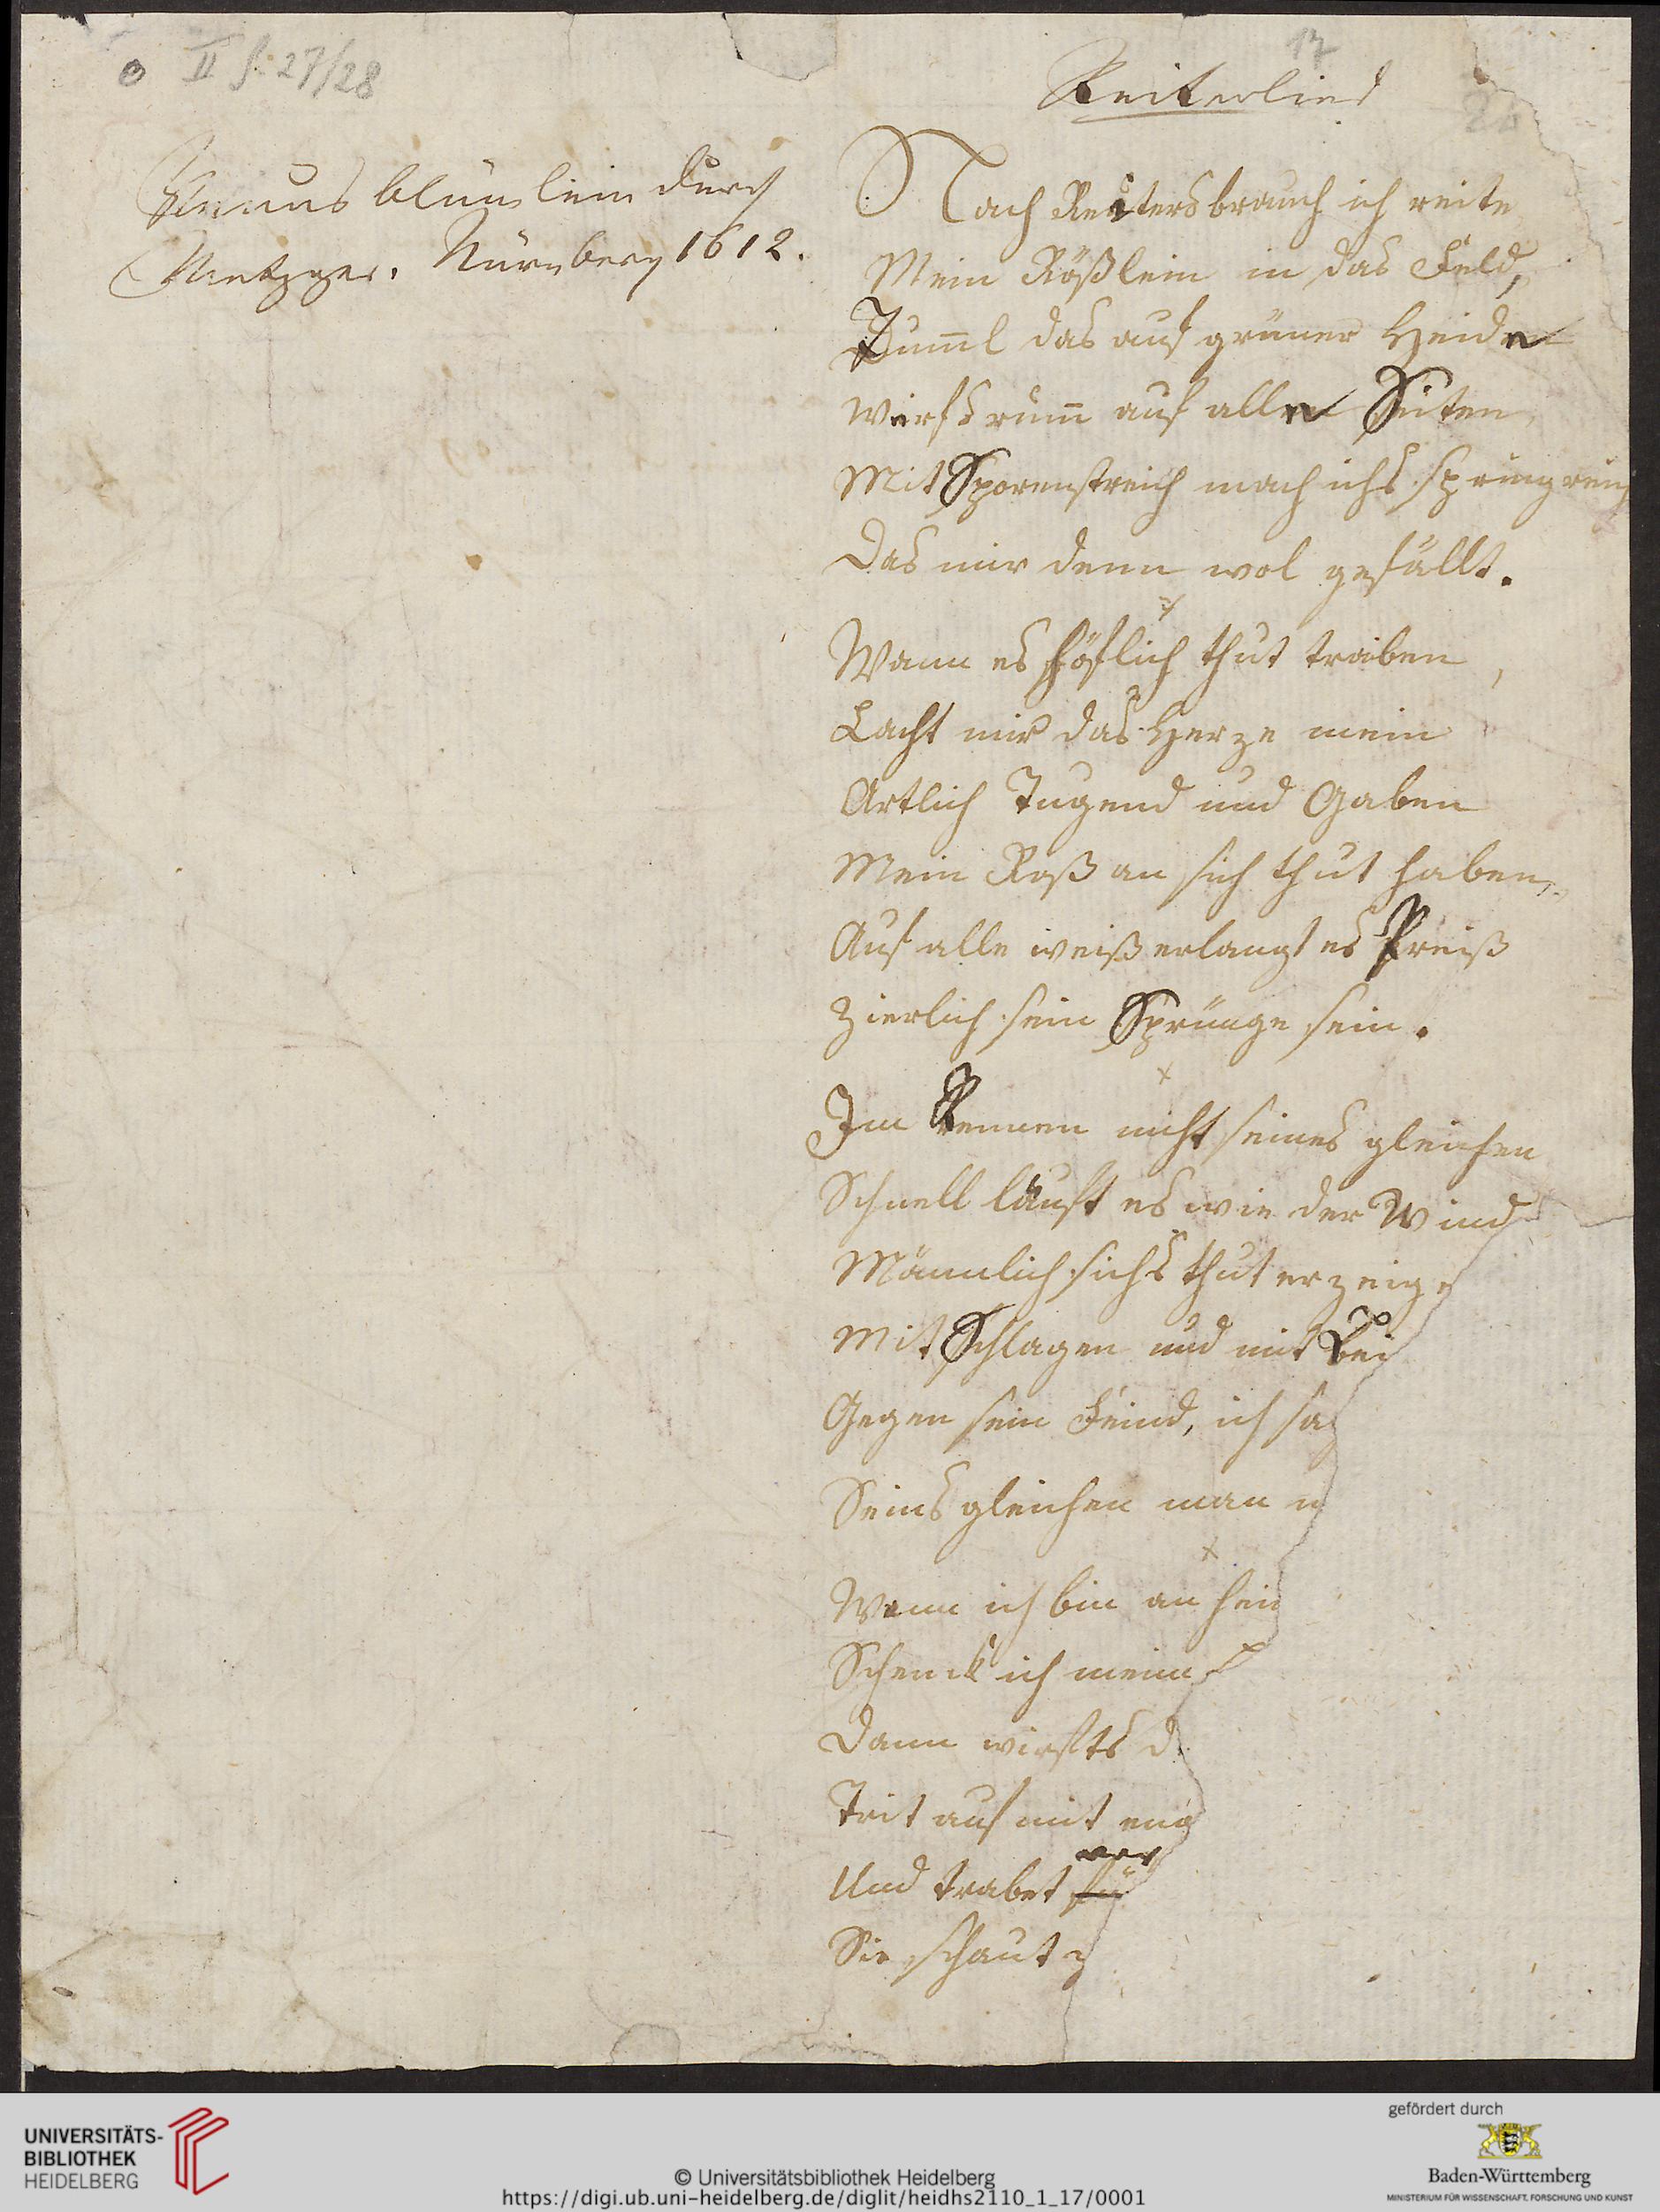 II f. 27/28
17
Reiterlied
Venus blümlein durch
Metzger. Nürnberg 1612.
Nach Reitersbrauch ich reite
Mein Rößlein in das Feld,
Tuml das auf grüner Heide
wirfs rum auf alle Seiten
Mit Sporenstreich mach ichs springreich
Das mir denn wol gefällt.
x
Wann es höflich thut traben,
Lacht mir das Herze mein
Artlich Tugend und Gaben
Mein Roß an sich thut haben,
Auf alle weiß erlangt es Preiß
Zierlich sein Sprünge sein.
x
Im Rennen nicht seines gleichen
Schnell läuft es wie der Wind
Mänlich sichs thut erzeige
Mit Schlagen und mit Bei
Gegen sein Feind, ich sag
Seins gleichen man n
x
Wenn ich bin an hei
Schenck ich meim
Dann wirfts d
Trit auf mit eng
ver
Und trabet fü
Sie schaut z
UNIVERSITÄTS-
BIBLIOTHEK
HEIDELBERG
© Universitätsbibliothek Heidelberg
https://digi.ub.uni-heidelberg.de/diglit/heidhs2110_1_17/0001
gefördert durch
Baden-Württemberg
MINISTERIUM FÜR WISSENSCHAFT, FORSCHUNG UND KUNST